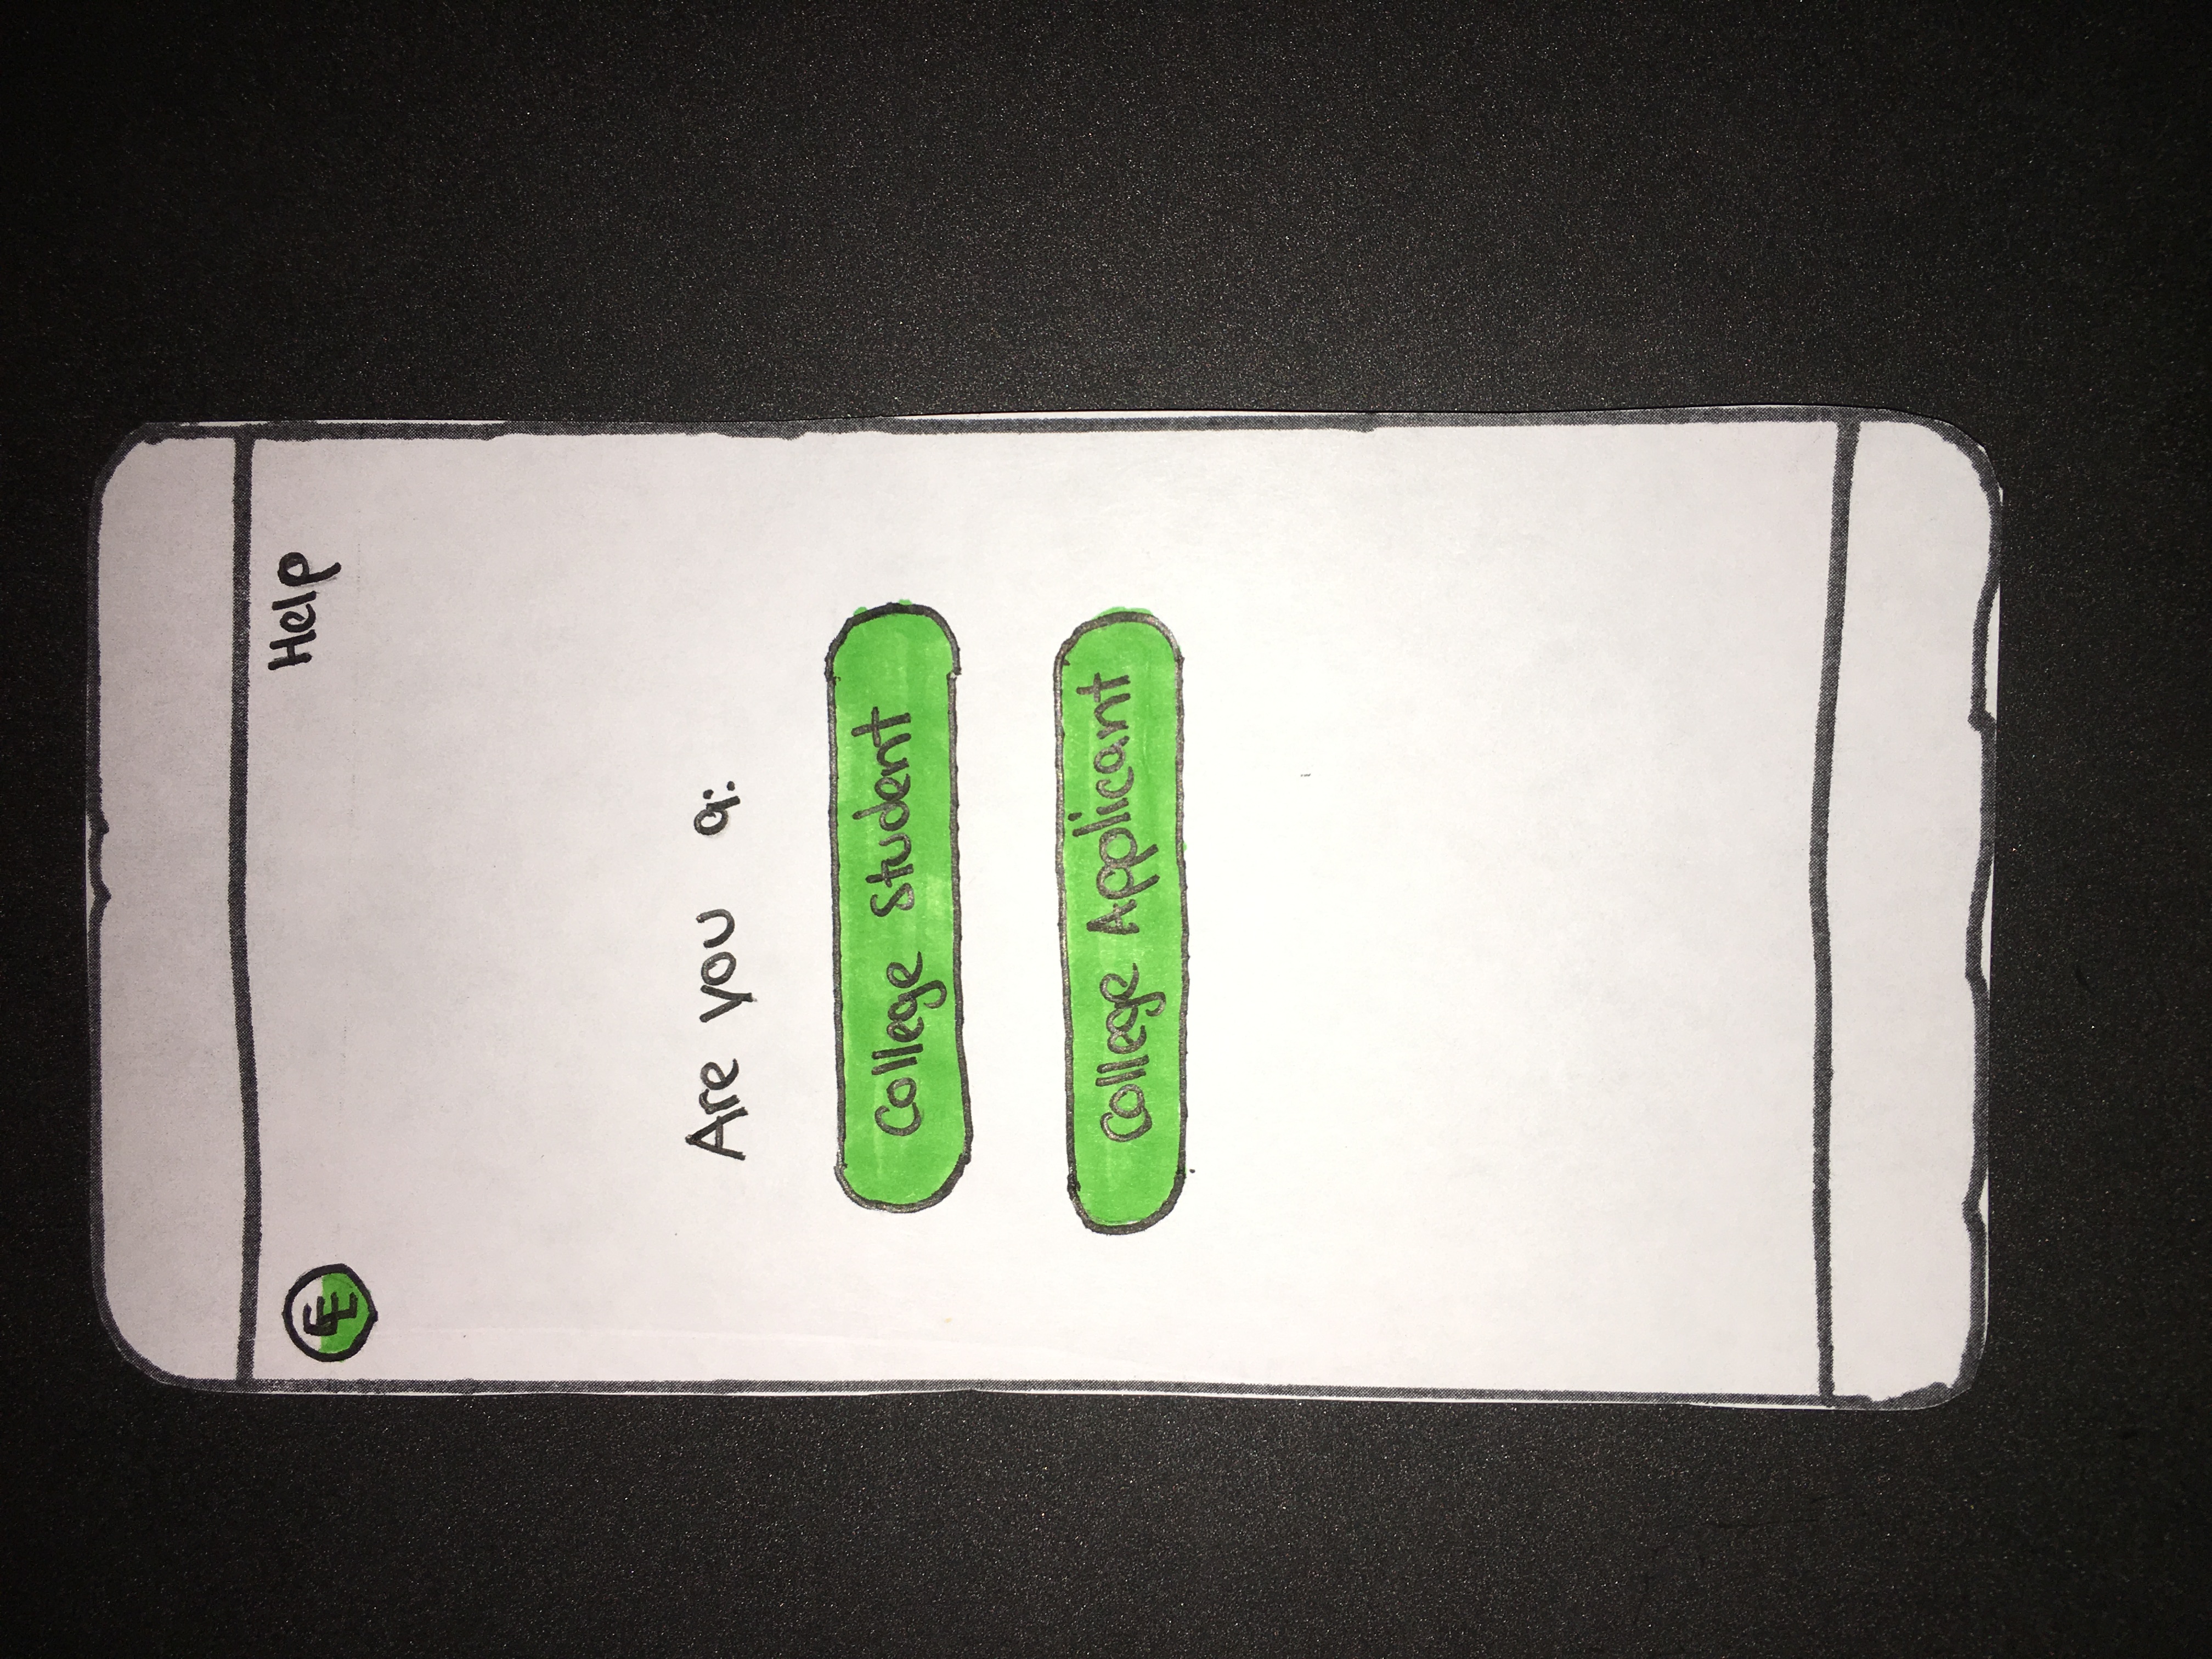 Help
Are you a:
College Student
College Applicant